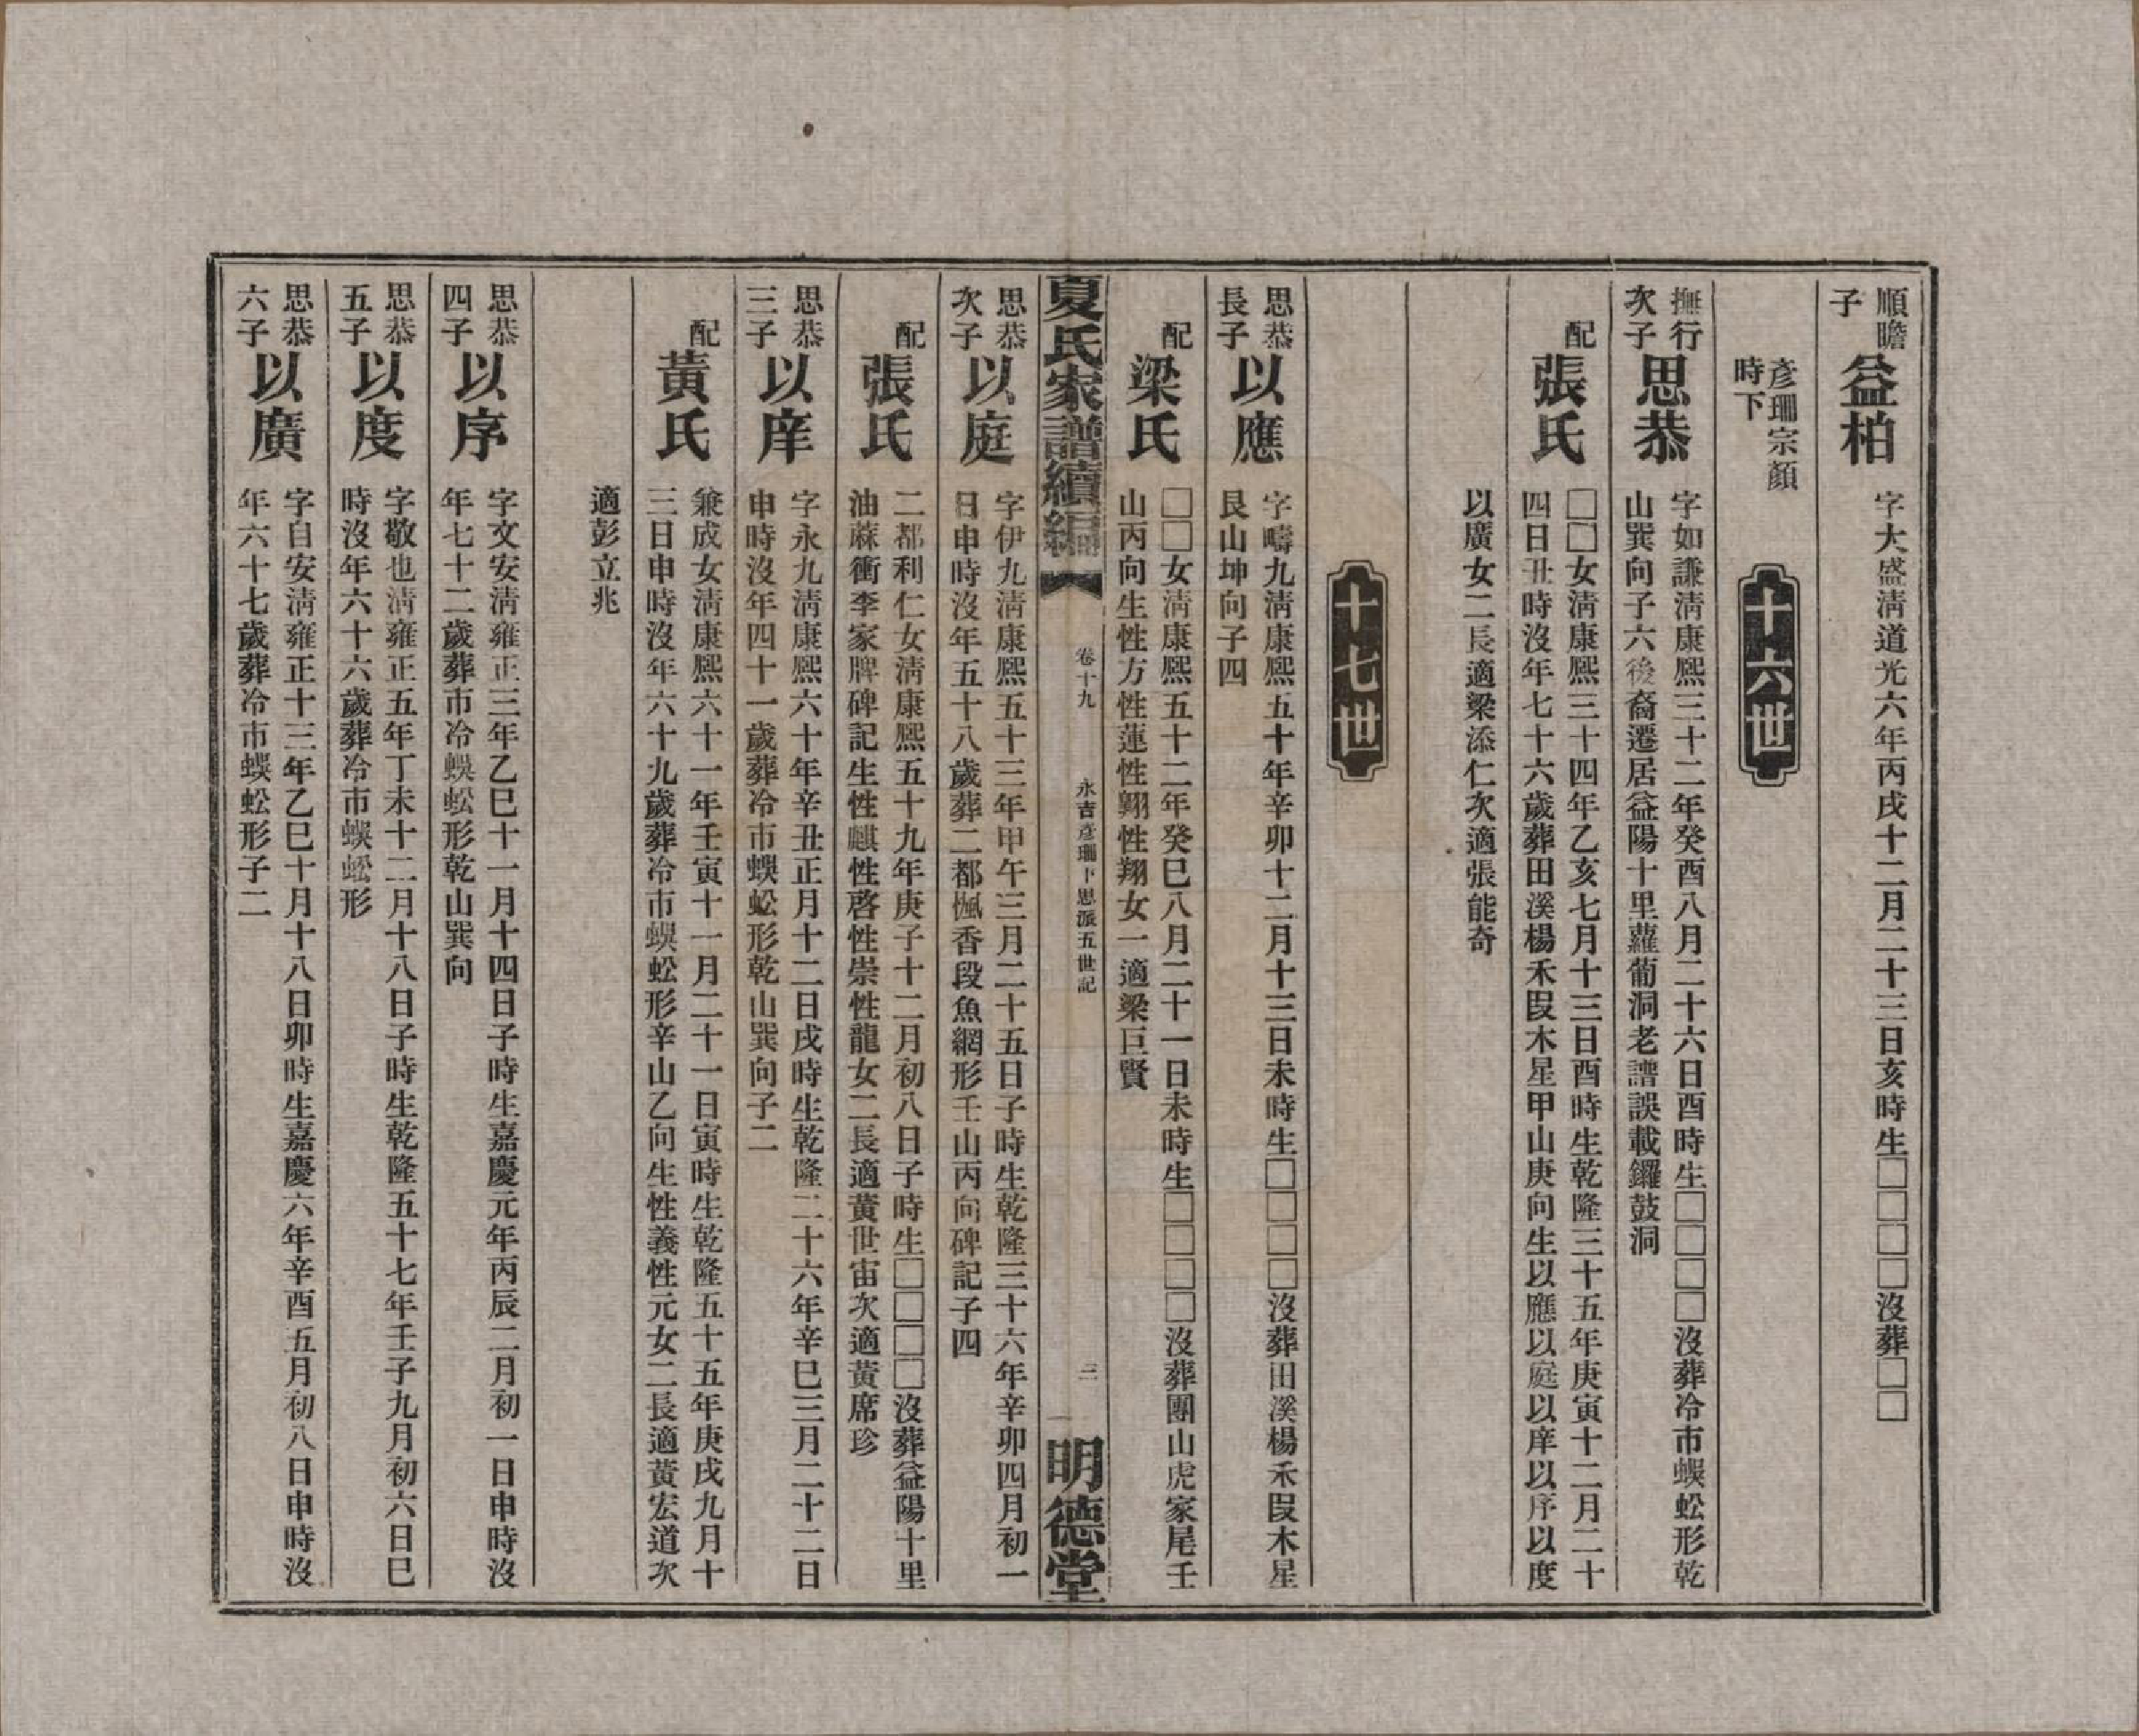 順瞻
子
益柏
字大盛淸道光六年丙戌十二月二十三日亥時生□□□□沒葬□□
彥珊宗顏
時下
十六世
撫行
次子
思恭
字如謙淸康熙三十二年癸酉八月二十六日酉時生□□□□沒葬冷市蜈蚣形乾
山巽向子六後裔遷居益陽十里蘿葡洞老譜誤載鑼鼓洞
配
張氏
□□女淸康熙三十四年乙亥七月十三日酉時生乾隆三十五年庚寅十二月二十
四日丑時沒年七十六歲葬田溪楊禾段木星甲山庚向生以應以庭以庠以序以度
以廣女二長適梁添仁次適張能奇
十七世
思恭
長子
以應
字疇九淸康熙五十年辛卯十二月十三日未時生□□□□沒葬田溪楊禾段木星
艮山坤向子四
配
梁氏
□□女淸康熙五十二年癸巳八月二十一日未時生□□□□沒葬團山虎家尾壬
山丙向生性方性蓮性翺性翔女一適梁巨賢
夏氏家譜續編
卷十九
永吉彥珊下思派五世記
三
明德堂
思恭
次子
以庭
字伊九淸康熙五十三年甲午三月二十五日子時生乾隆三十六年辛卯四月初一
日申時沒年五十八歲葬二都楓香段魚網形壬山丙向碑記子四
配
張氏
二都利仁女淸康熙五十九年庚子十二月初八日子時生□□□□沒葬益陽十里
油蔴衝李家牌碑記生性麒性啓性崇性龍女二長適黃世宙次適黃席珍
思恭
三子
以庠
字永九淸康熙六十年辛丑正月十二日戌時生乾隆二十六年辛巳三月二十二日
申時沒年四十一歲葬冷市蜈蚣形乾山巽向子二
配
黃氏
兼成女淸康熙六十一年壬寅十一月二十一日寅時生乾隆五十五年庚戌九月十
三日申時沒年六十九歲葬冷市蜈蚣形辛山乙向生性義性元女二長適黃宏道次
適彭立兆
思恭
四子
以序
字文安淸雍正三年乙巳十一月十四日子時生嘉慶元年丙辰二月初一日申時沒
年七十二歲葬市冷蜈蚣形乾山巽向
思恭
五子
以度
字敬也淸雍正五年丁未十二月十八日子時生乾隆五十七年壬子九月初六日巳
時沒年六十六歲葬冷市蜈蚣形
思恭
六子
以廣
字自安淸雍正十三年乙巳十月十八日卯時生嘉慶六年辛酉五月初八日申時沒
年六十七歲葬冷市蜈蚣形子二